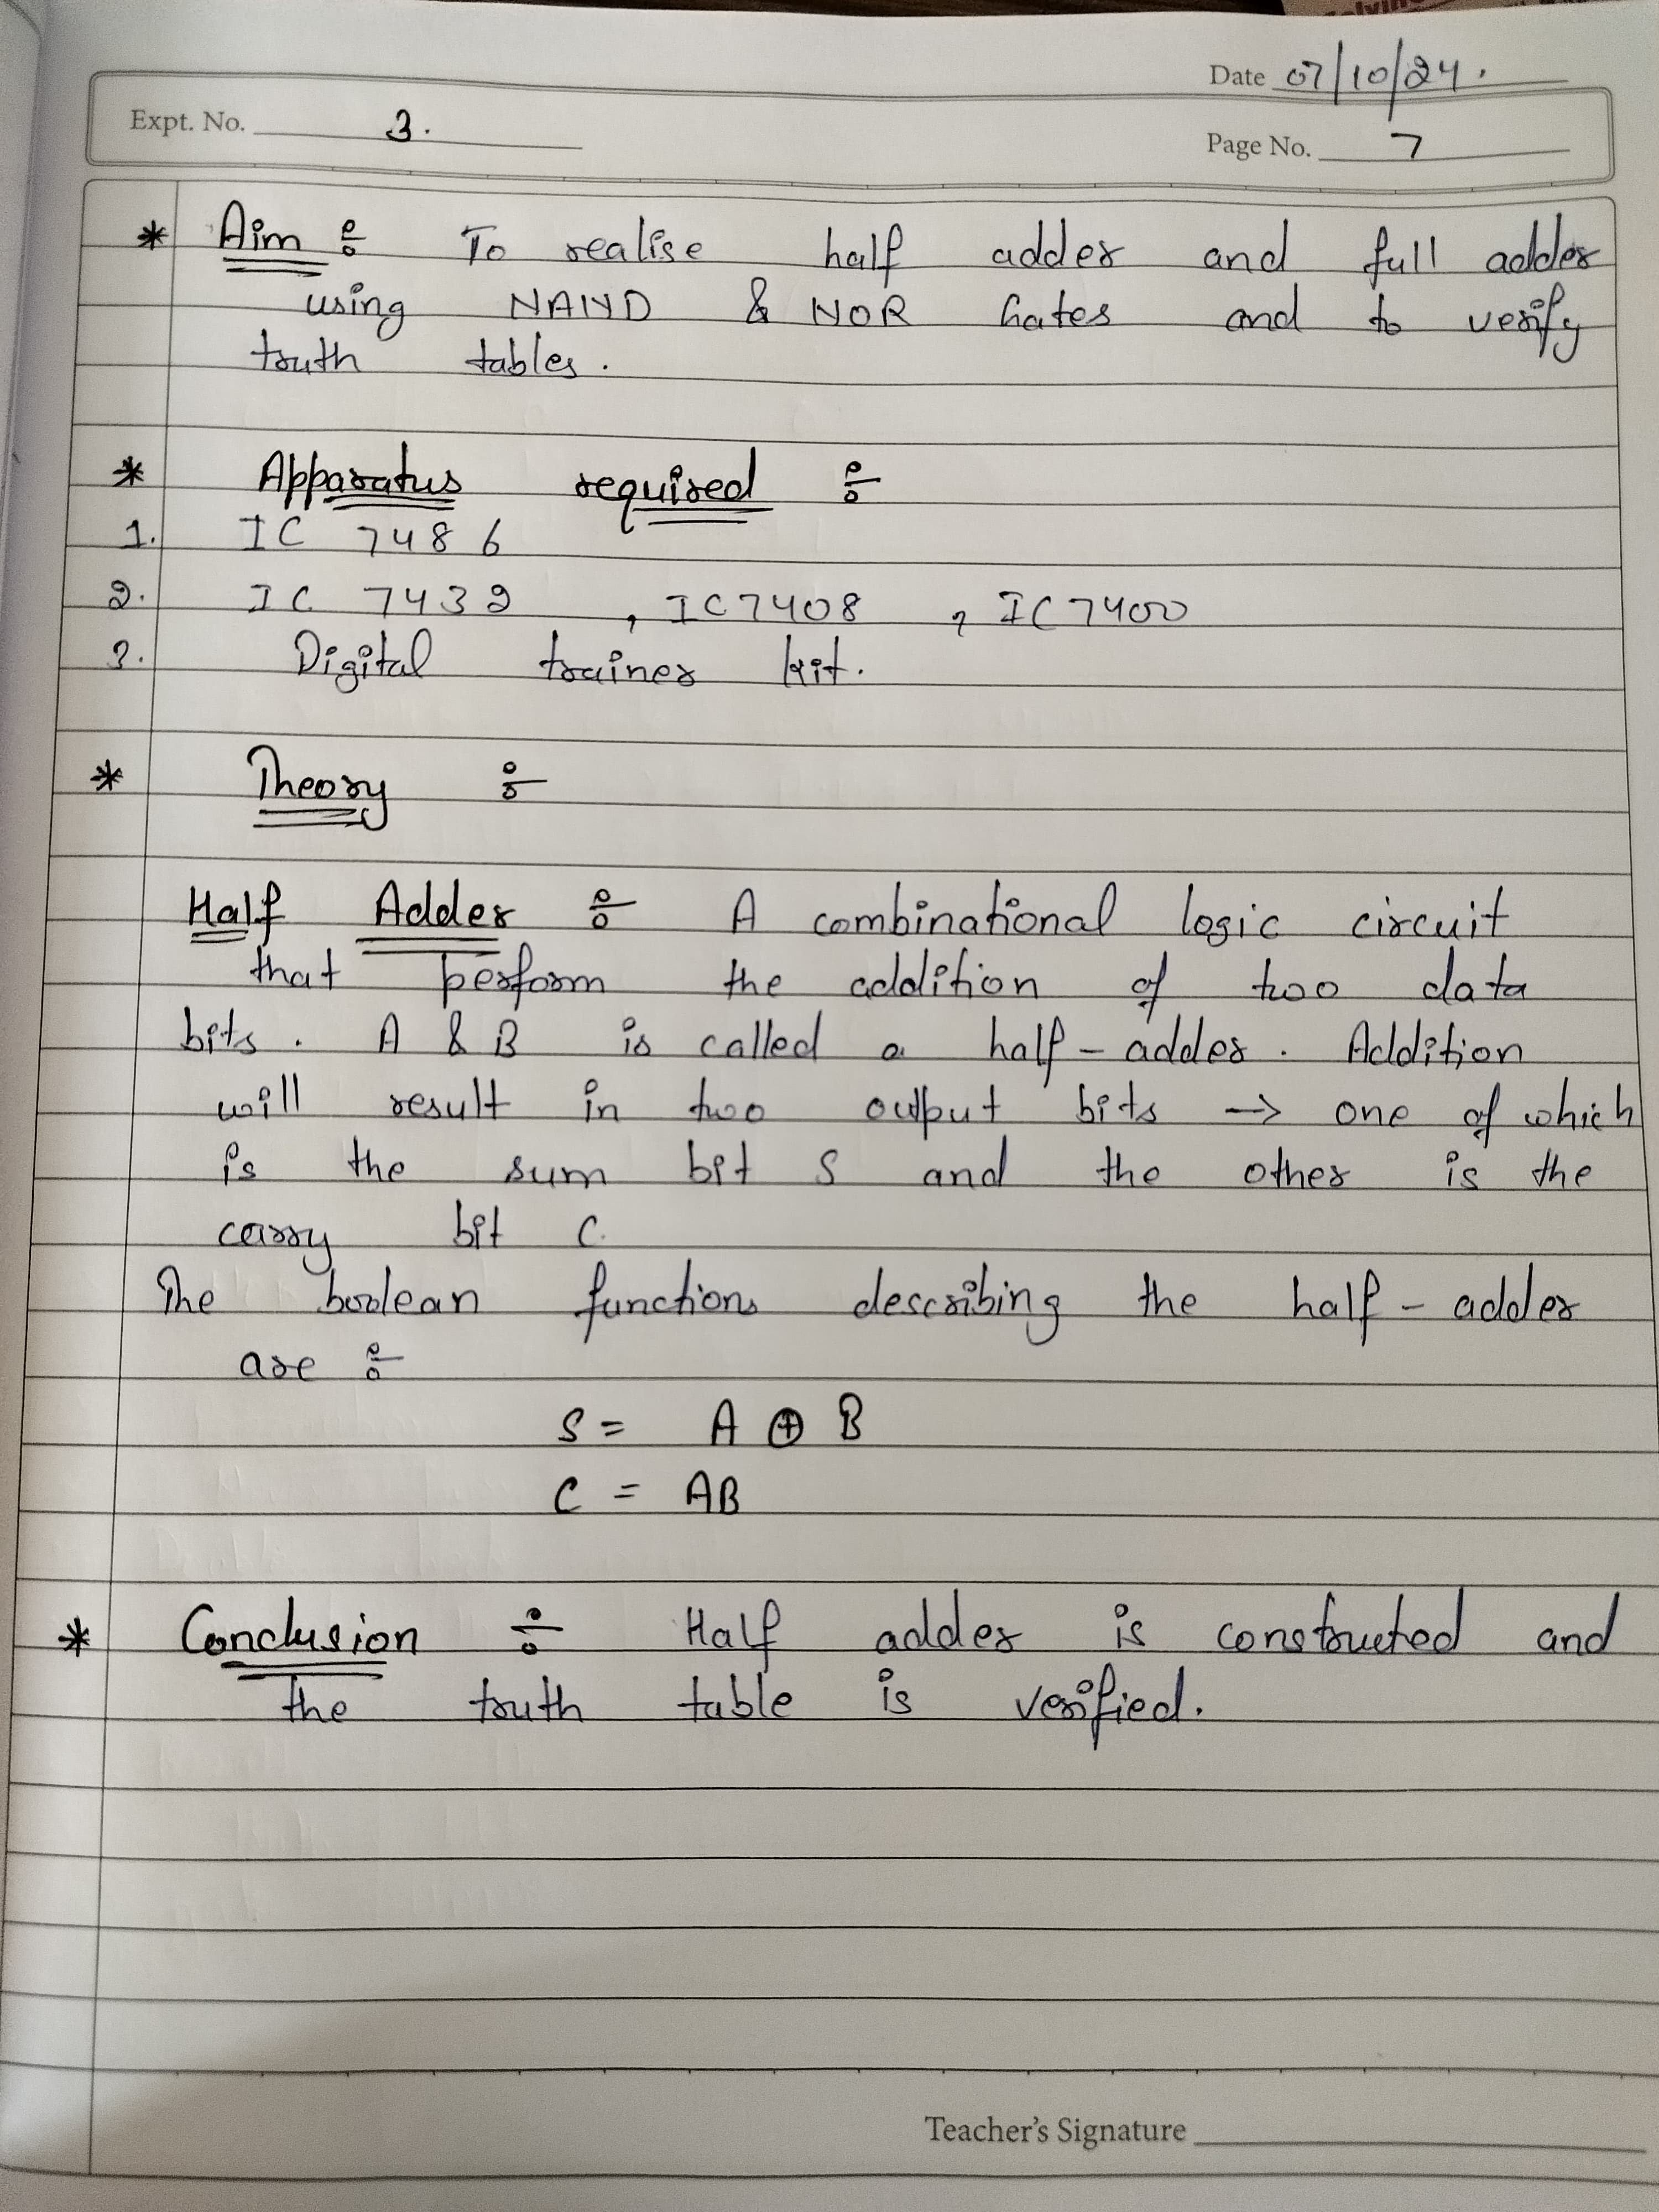 Date 07/10/24.
Expt. No. 3.
Page No. 7
* Aim : To realise half adder and full adder
using NAND & NOR Gates and to verify
truth tables.
* Apparatus required :
1. IC 7486
2. IC 7432 , IC7408 , IC7400
3. Digital trainer kit.
* Theory :
Half Adder : A combinational logic circuit
that perform the addition of two data
bits. A & B is called a half-adder. Addition
will result in two output bits → one of which
is the sum bit S and the other is the
carry bit C.
The boolean functions describing the half-adder
are :
S = A ⊕ B
C = AB
* Conclusion : Half adder is constructed and
the truth table is verified.
Teacher's Signature